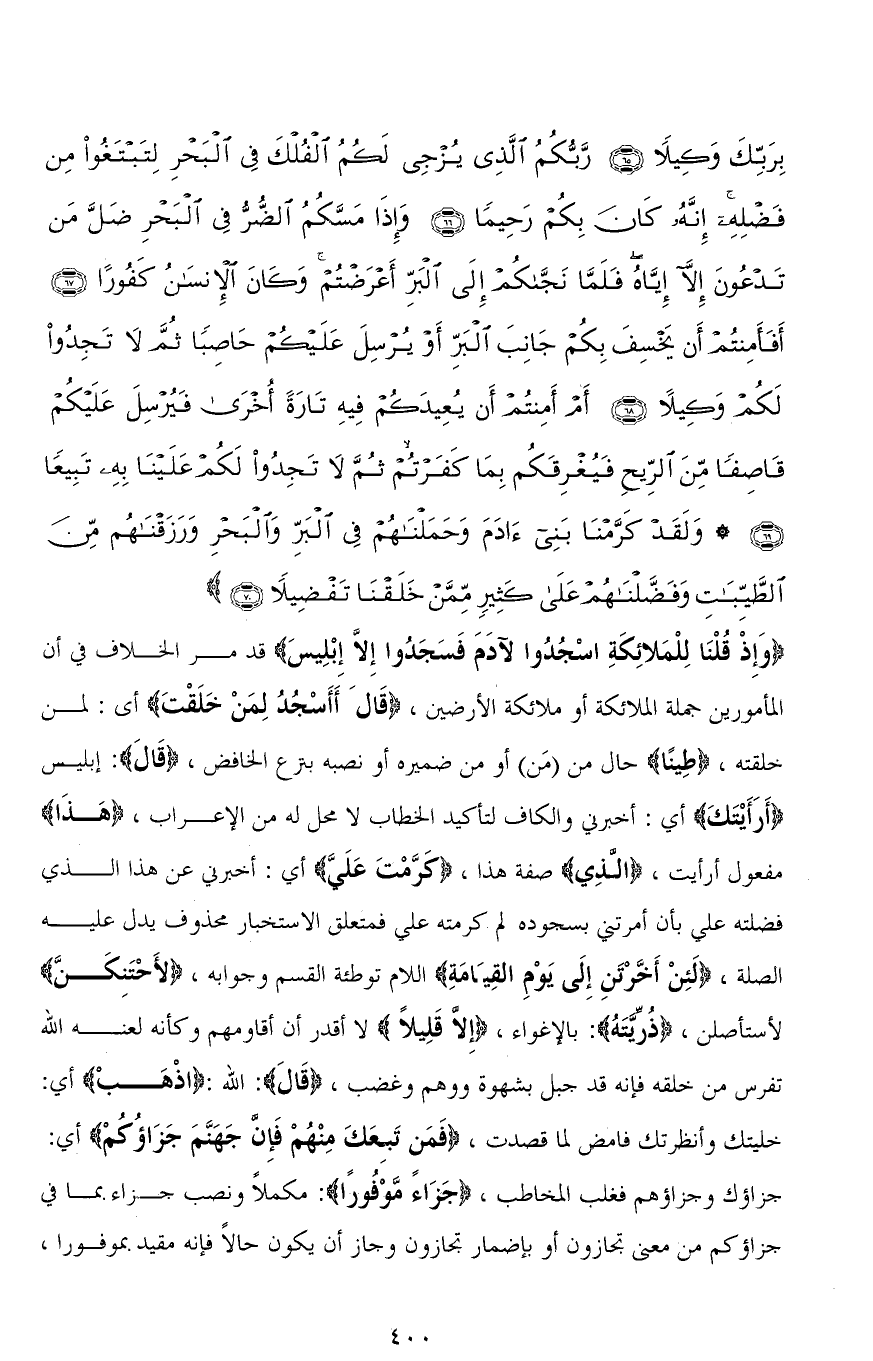 بِرَبِّكَ وَكِيلًا ﴿٦٥﴾ رَّبُّكُمُ ٱلَّذِى يُزْجِى لَكُمُ ٱلْفُلْكَ فِى ٱلْبَحْرِ لِتَبْتَغُوا۟ مِن
فَضْلِهِۦٓ ۚ إِنَّهُۥ كَانَ بِكُمْ رَحِيمًا ﴿٦٦﴾ وَإِذَا مَسَّكُمُ ٱلضُّرُّ فِى ٱلْبَحْرِ ضَلَّ مَن
تَدْعُونَ إِلَّآ إِيَّاهُ ۖ فَلَمَّا نَجَّىٰكُمْ إِلَى ٱلْبَرِّ أَعْرَضْتُمْ ۚ وَكَانَ ٱلْإِنسَـٰنُ كَفُورًا ﴿٦٧﴾
أَفَأَمِنتُمْ أَن يَخْسِفَ بِكُمْ جَانِبَ ٱلْبَرِّ أَوْ يُرْسِلَ عَلَيْكُمْ حَاصِبًا ثُمَّ لَا تَجِدُوا۟
لَكُمْ وَكِيلًا ﴿٦٨﴾ أَمْ أَمِنتُمْ أَن يُعِيدَكُمْ فِيهِ تَارَةً أُخْرَىٰ فَيُرْسِلَ عَلَيْكُمْ
قَاصِفًا مِّنَ ٱلرِّيحِ فَيُغْرِقَكُم بِمَا كَفَرْتُمْ ۙ ثُمَّ لَا تَجِدُوا۟ لَكُمْ عَلَيْنَا بِهِۦ تَبِيعًا
﴿٦٩﴾ ۞ وَلَقَدْ كَرَّمْنَا بَنِىٓ ءَادَمَ وَحَمَلْنَـٰهُمْ فِى ٱلْبَرِّ وَٱلْبَحْرِ وَرَزَقْنَـٰهُم مِّنَ
ٱلطَّيِّبَـٰتِ وَفَضَّلْنَـٰهُمْ عَلَىٰ كَثِيرٍ مِّمَّنْ خَلَقْنَا تَفْضِيلًا ﴿٧٠﴾ ﴾
﴿وَإِذْ قُلْنَا لِلْمَلائِكَةِ اسْجُدُوا لآدَمَ فَسَجَدُوا إِلاَّ إِبْلِيسَ﴾ قد مـر الخـلاف في أن
المأمورين جملة الملائكة أو ملائكة الأرضين ، ﴿قَالَ أَأَسْجُدُ لِمَنْ خَلَقْتَ﴾ أى : لمـن
خلقته ، ﴿طِينًا﴾ حال من (مَن) أو من ضميره أو نصبه بنزع الخافض ، ﴿قَالَ﴾: إبليس
﴿أَرَأَيْتَكَ﴾ أي : أخبرني والكاف لتأكيد الخطاب لا محل له من الإعـراب ، ﴿هَـذَا﴾
مفعول أرأيت ، ﴿الَّذِي﴾ صفة هذا ، ﴿كَرَّمْتَ عَلَيَّ﴾ أي : أخبرني عن هذا الـذي
فضلته علي بأن أمرتني بسجوده لم كرمته علي فمتعلق الاستخبار محذوف يدل عليـه
الصلة ، ﴿لَئِنْ أَخَّرْتَنِ إِلَى يَوْمِ القِيَامَةِ﴾ اللام توطئة القسم وجوابه ، ﴿لأَحْتَنِكَـنَّ﴾
لأستأصلن ، ﴿ذُرِّيَّتَهُ﴾: بالإغواء ، ﴿إِلاَّ قَلِيلاً ﴾ لا أقدر أن أقاومهم وكأنه لعنـه الله
تفرس من خلقه فإنه قد جبل بشهوة ووهم وغضب ، ﴿قَالَ﴾: الله :﴿اذْهَـبْ﴾ أي:
خليتك وأنظرتك فامض لما قصدت ، ﴿فَمَن تَبِعَكَ مِنْهُمْ فَإِنَّ جَهَنَّمَ جَزَاؤُكُمْ﴾ أي:
جزاؤك وجزاؤهم فغلب المخاطب ، ﴿جَزَاءً مَّوْفُورًا﴾: مكملاً ونصب جـزاء بمـا في
جزاؤكم من معنى تجازون أو بإضمار تجازون وجاز أن يكون حالاً فإنه مقيد بموفـورا ،
٤٠٠